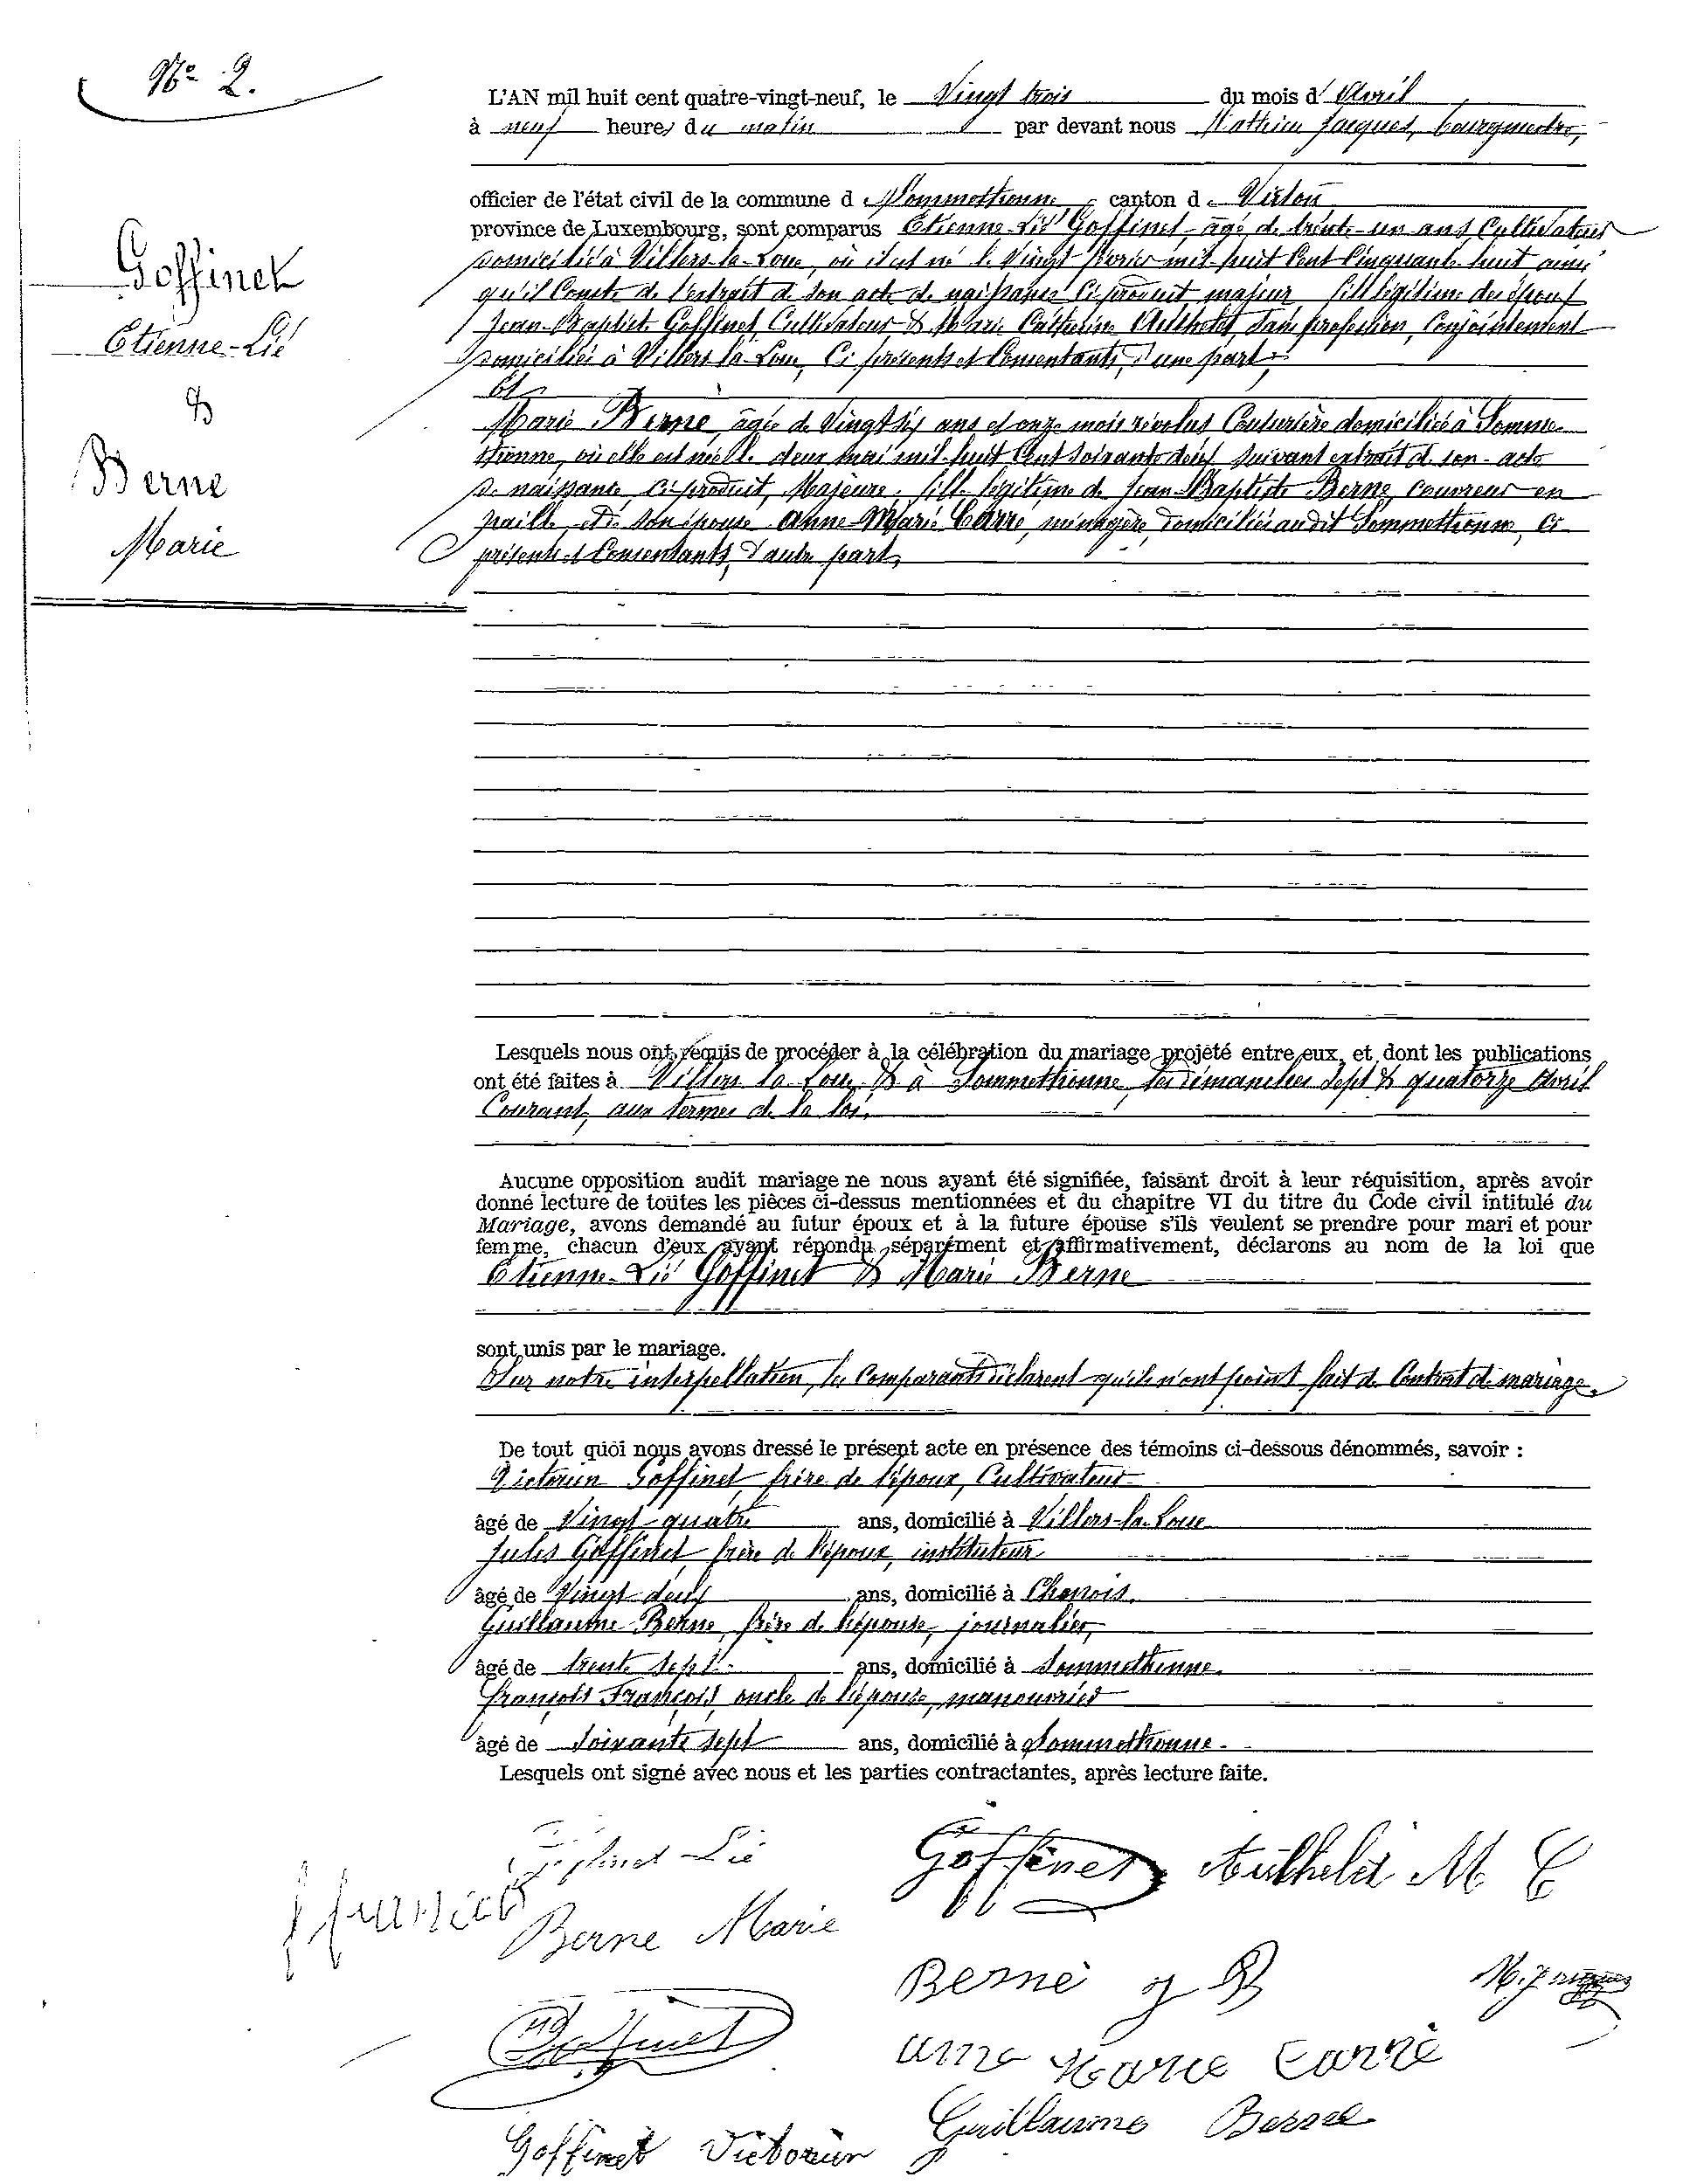 N° 2.
L'AN mil huit cent quatre-vingt-neuf, le Vingt trois du mois d'Avril
à neuf heures du matin par devant nous Mathieu Jacques, bourgmestre,
officier de l'état civil de la commune de Sommethonne, canton de Virton
province de Luxembourg, sont comparus Etienne-Lié Goffinet, âgé de trente-un ans, Cultivateur
domicilié à Villers-la-Loue, où il est né le vingt février mil-huit Cent Cinquante-huit ainsi
qu'il Conste de l'extrait de son acte de naissance Ci-produit, majeur, fils légitime des époux
Jean-Baptiste Goffinet, Cultivateur & Marie Catherine Authelet, sans profession, Conjointement
domiciliés à Villers-la-Loue, Ci présents et Consentants, d'une part;
Et
Marie Berne, âgée de Vingt six ans et onze mois révolus Couturière domiciliée à Somme-
thonne, où elle est née le deux mai mil-huit Cent soixante deux suivant extrait de son acte
de naissance ci-produit, Majeure, fille légitime de Jean-Baptiste Berne, couvreur en
paille et de son épouse Anne-Marie Carré, ménagère, domiciliés audit Sommethonne, Ci
présents et Consentants, d'autre part,
Goffinet
Etienne-Lié
&
Berne
Marie
Lesquels nous ont requis de procéder à la célébration du mariage projeté entre eux, et dont les publications
ont été faites à Villers-la-Loue & à Sommethonne, les dimanches sept & quatorze Avril
Courant, aux termes de la loi.
Aucune opposition audit mariage ne nous ayant été signifiée, faisant droit à leur réquisition, après avoir
donné lecture de toutes les pièces ci-dessus mentionnées et du chapitre VI du titre du Code civil intitulé du
Mariage, avons demandé au futur époux et à la future épouse s'ils veulent se prendre pour mari et pour
femme, chacun d'eux ayant répondu séparément et affirmativement, déclarons au nom de la loi que
Etienne-Lié Goffinet & Marie Berne
sont unis par le mariage.
Sur notre interpellation, les Comparants déclarent qu'ils n'ont point fait de Contrat de mariage.
De tout quoi nous avons dressé le présent acte en présence des témoins ci-dessous dénommés, savoir :
Victorien Goffinet, frère de l'époux, Cultivateur
âgé de Vingt-quatre ans, domicilié à Villers-la-Loue
Jules Goffinet, frère de l'époux, instituteur
âgé de Vingt-deux ans, domicilié à Chenois.
Guillaume Berne, frère de l'épouse, journalier,
âgé de trente sept ans, domicilié à Sommethonne.
François François, oncle de l'épouse, manouvrier
âgé de soixante sept ans, domicilié à Sommethonne.
Lesquels ont signé avec nous et les parties contractantes, après lecture faite.
Goffinet Lié Goffinet Authelet M C
Berne Marie
Berne J B M. Jacques
Goffinet
anne Marie Carré
Guillaume Berne
Goffinet Victorien